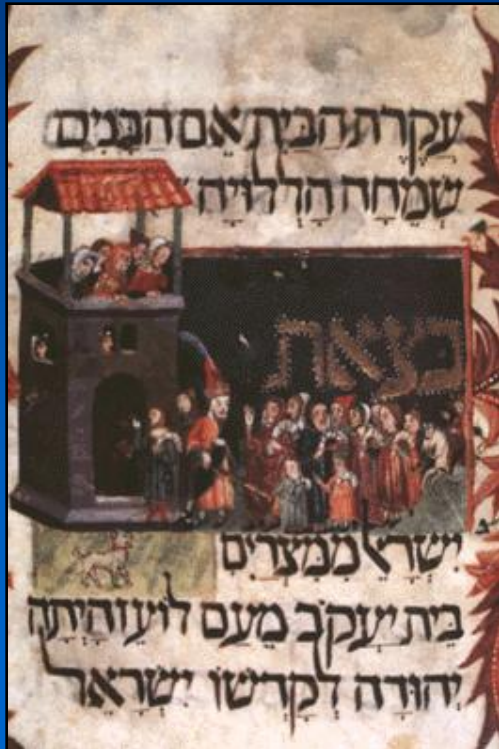 עֲקֶרֶת הַבַּיִת אֵם הַבָּנִים
שְׂמֵחָה הַלְלוּיָהּ
בצאת
יִשְׂרָאֵל מִמִּצְרַיִם
בֵּית יַעֲקֹב מֵעַם לוֹעֵז הָיְתָה
יְהוּדָה לְקָדְשׁוֹ יִשְׂרָאֵל